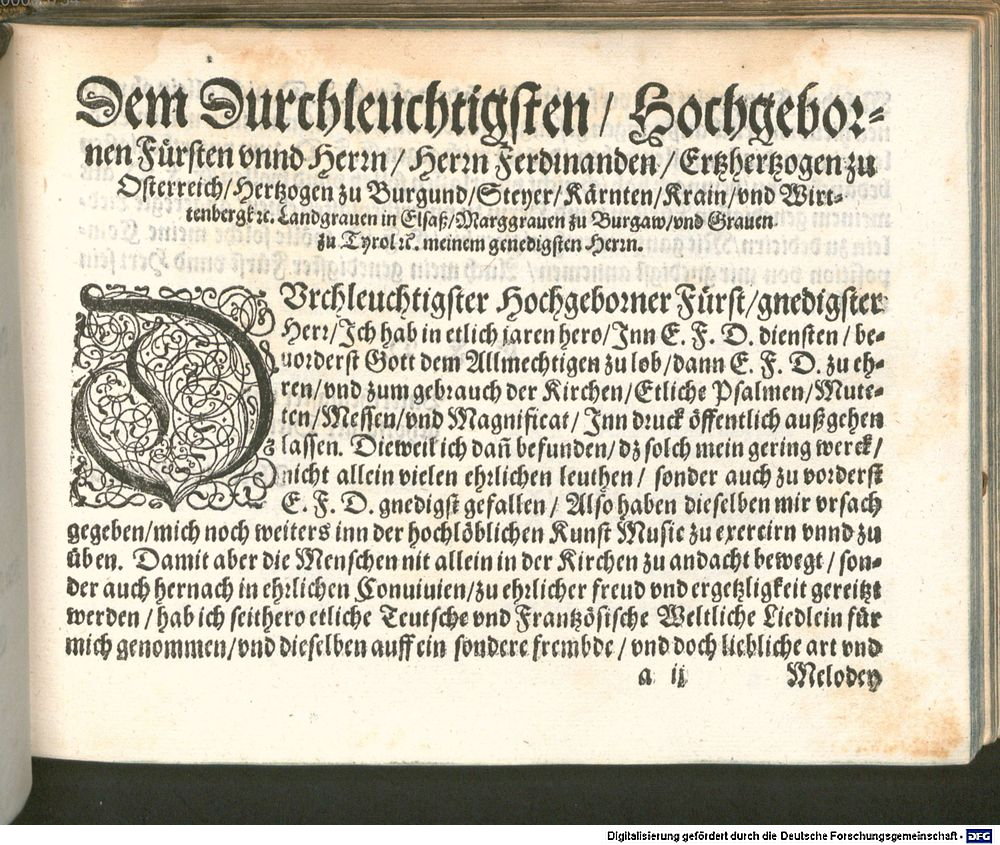 Dem Durchleuchtigsten / Hochgebor-
nen Fürsten vnnd Herrn / Herrn Ferdinanden / Ertzhertzogen zu
Osterreich / Hertzogen zu Burgund / Steyer / Kärnten / Krain / vnd Wirt-
tenbergk ꝛc. Landgrauen in Elsaß / Marggrauen zu Burgaw / vnd Grauen
zu Tyrol ꝛc. meinem genedigsten Herrn.
DVrchleuchtigster Hochgeborner Fürst / gnedigster
Herr / Ich hab in etlich jaren hero / Inn E. F. D. diensten / be-
uorderst Gott dem Allmechtigen zu lob / dann E. F. D. zu eh-
ren / vnd zum gebrauch der Kirchen / Etliche Psalmen / Mute-
ten / Messen / vnd Magnificat / Inn druck öffentlich außgehen
lassen. Dieweil ich dañ befunden / dz solch mein gering werck /
nicht allein vielen ehrlichen leuthen / sonder auch zu vorderst
E. F. D. gnedigst gefallen / Also haben dieselben mir vrsach
gegeben / mich noch weiters inn der hochlöblichen Kunst Music zu exercirn vnnd zu
üben. Damit aber die Menschen nit allein in der Kirchen zu andacht bewegt / son-
der auch hernach in ehrlichen Conuiuien / zu ehrlicher freud vnd ergetzligkeit gereitzt
werden / hab ich seithero etliche Teutsche vnd Frantzösische Weltliche Liedlein für
mich genommen / vnd dieselben auff ein sondere frembde / vnd doch liebliche art vnd
a ij Melodey
Digitalisierung gefördert durch die Deutsche Forschungsgemeinschaft - DFG